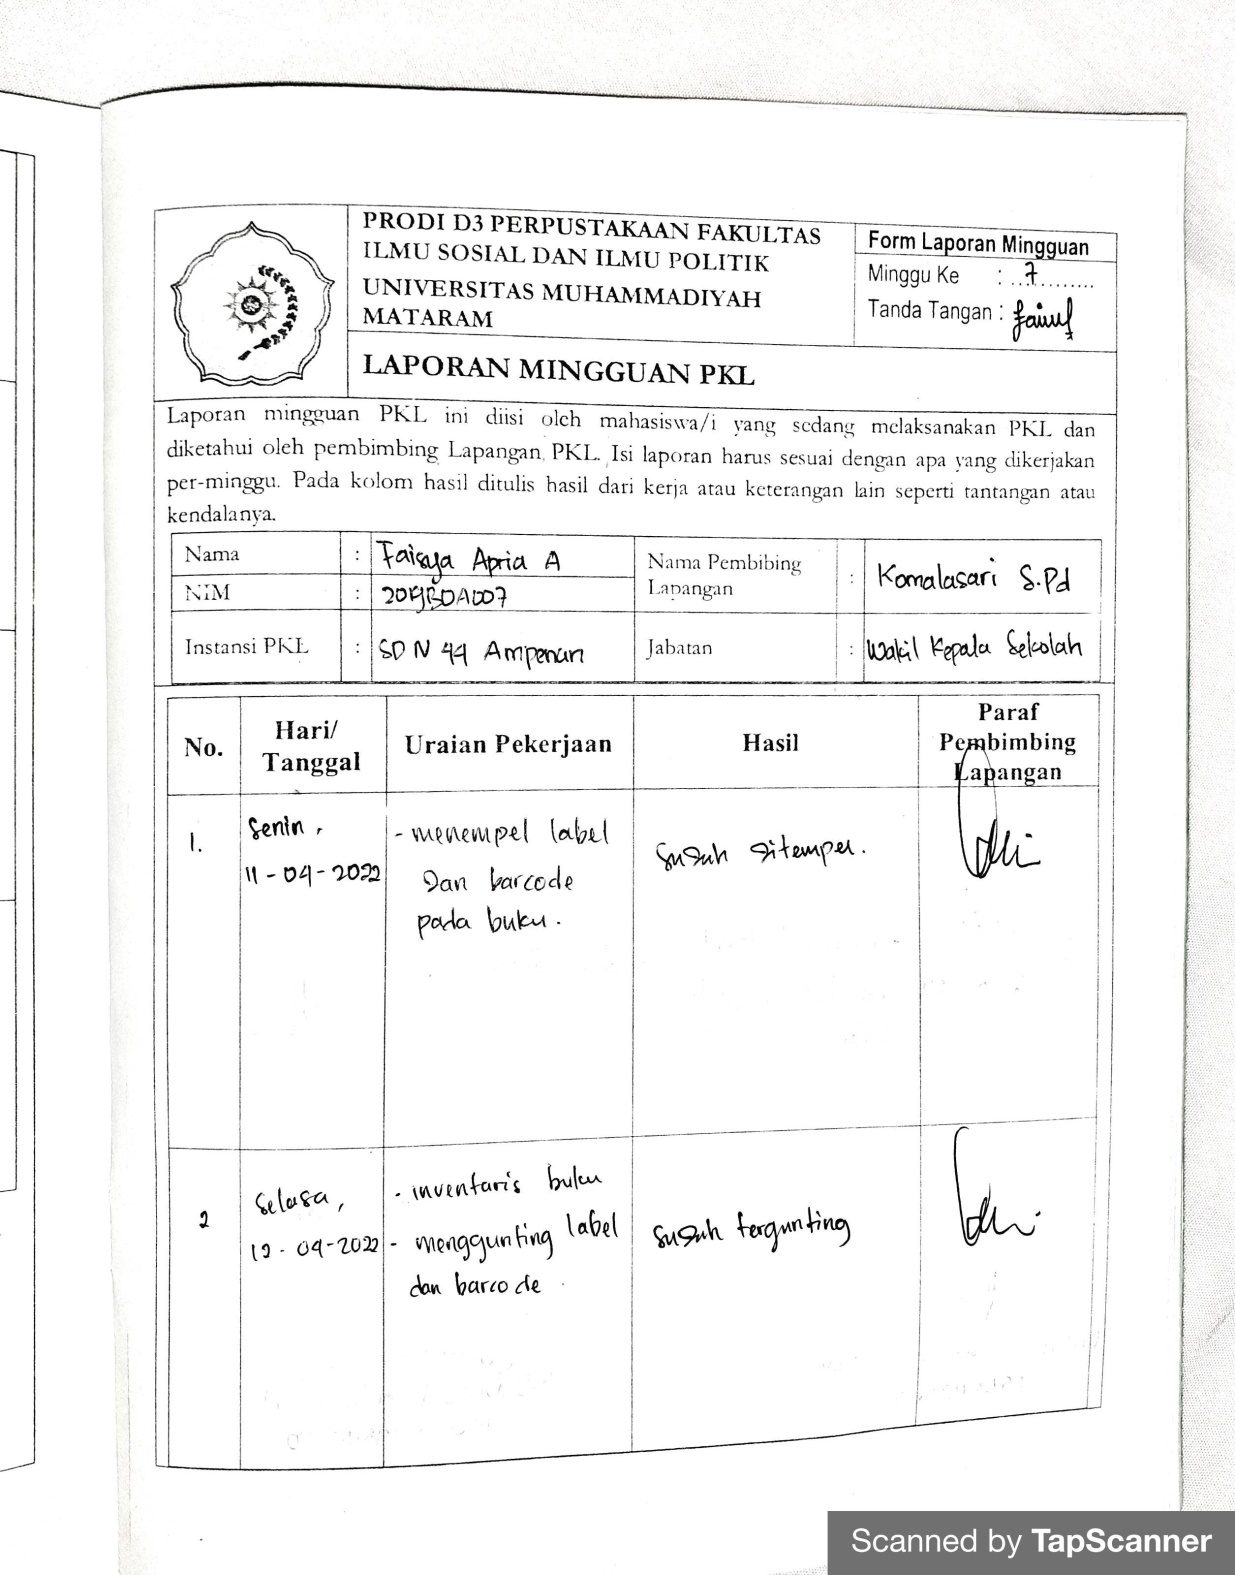 PRODI D3 PERPUSTAKAAN FAKULTAS
ILMU SOSIAL DAN ILMU POLITIK
UNIVERSITAS MUHAMMADIYAH
MATARAM
LAPORAN MINGGUAN PKL
Form Laporan Mingguan
Minggu Ke : ..7..........
Tanda Tangan :
Laporan mingguan PKL ini diisi oleh mahasiswa/i yang sedang melaksanakan PKL dan
diketahui oleh pembimbing Lapangan PKL. Isi laporan harus sesuai dengan apa yang dikerjakan
per-minggu. Pada kolom hasil ditulis hasil dari kerja atau keterangan lain seperti tantangan atau
kendalanya.
Nama : Faisya Apria A
NIM : 2019BDA007
Instansi PKL : SDN 44 Ampenan
Nama Pembibing
Lapangan : Komalasari S.Pd
Jabatan : Wakil Kepala Sekolah
No.
Hari/
Tanggal
Uraian Pekerjaan
Hasil
Paraf
Pembimbing
Lapangan
1.
Senin,
11-04-2022
- menempel label
dan barcode
pada buku.
sudah ditempel.
2
Selasa,
12-04-2022
- inventaris buku
- menggunting label
dan barcode
sudah tergunting
Scanned by TapScanner